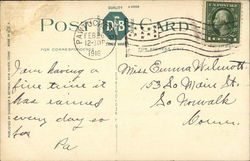 QUALITY
POST CARD
D&B
FOR CORRESPONDENCE
FEB
12-30P
1916
I am having a
fine time it
has rained
every day so
far
Pa
Miss Emma Wilmott
153 So Main St.
So Norwalk
Conn.